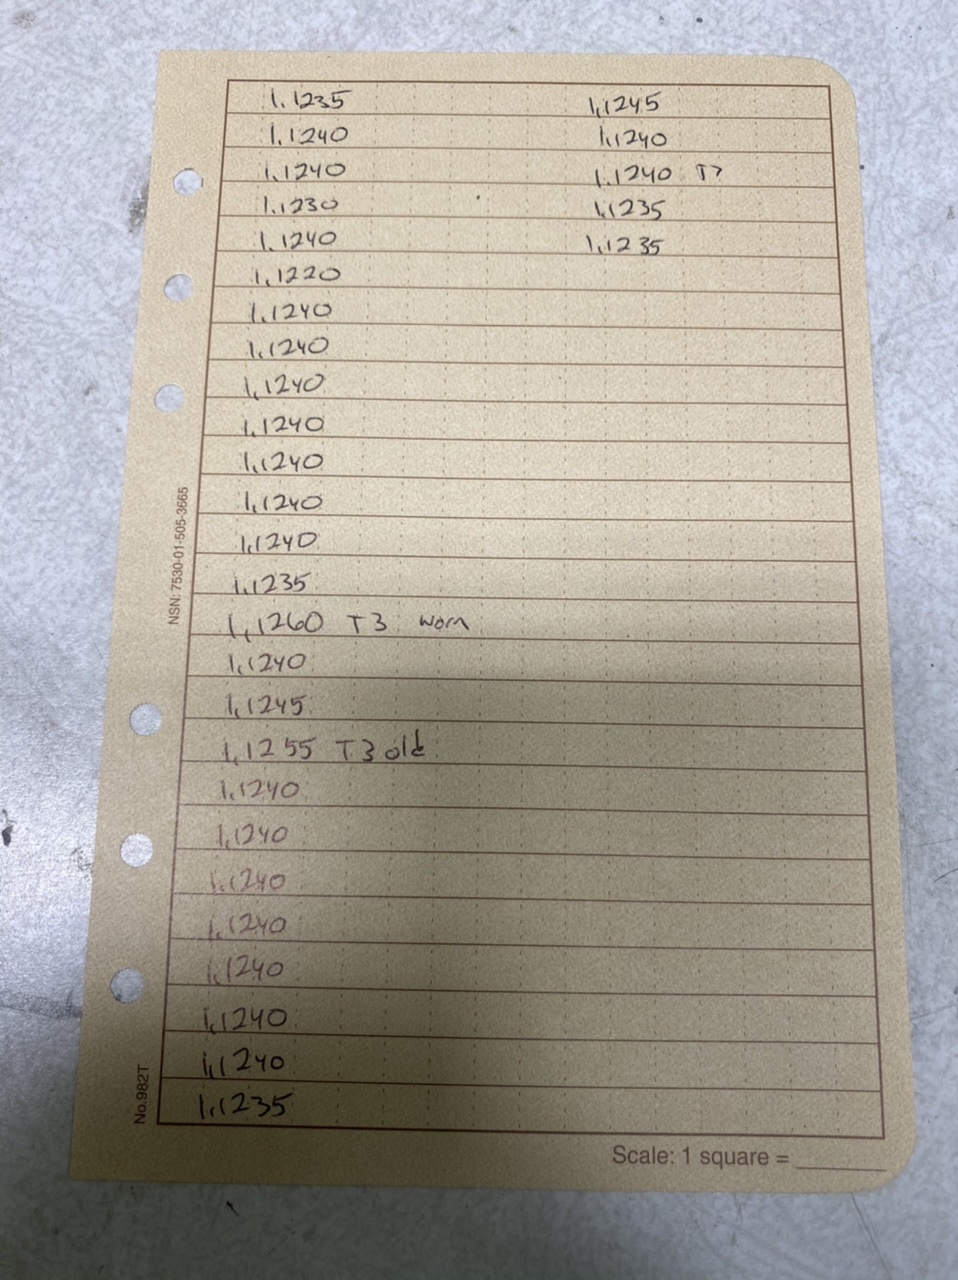 1.1235
1.1240
1.1240
1.1230
1.1240
1.1220
1.1240
1.1240
1.1240
1.1240
1.1240
1.1240
1.1240
1.1235
1.1260 T3 worn
1.1240
1.1245
1.1255 T3 old
1.1240
1.1240
1.1240
1.1240
1.1240
1.1240
1.1240
1.1235
1.1245
1.1240
1.1240 T?
1.1235
1.1235
NSN: 7530-01-505-3665
No.982T
Scale: 1 square = ______